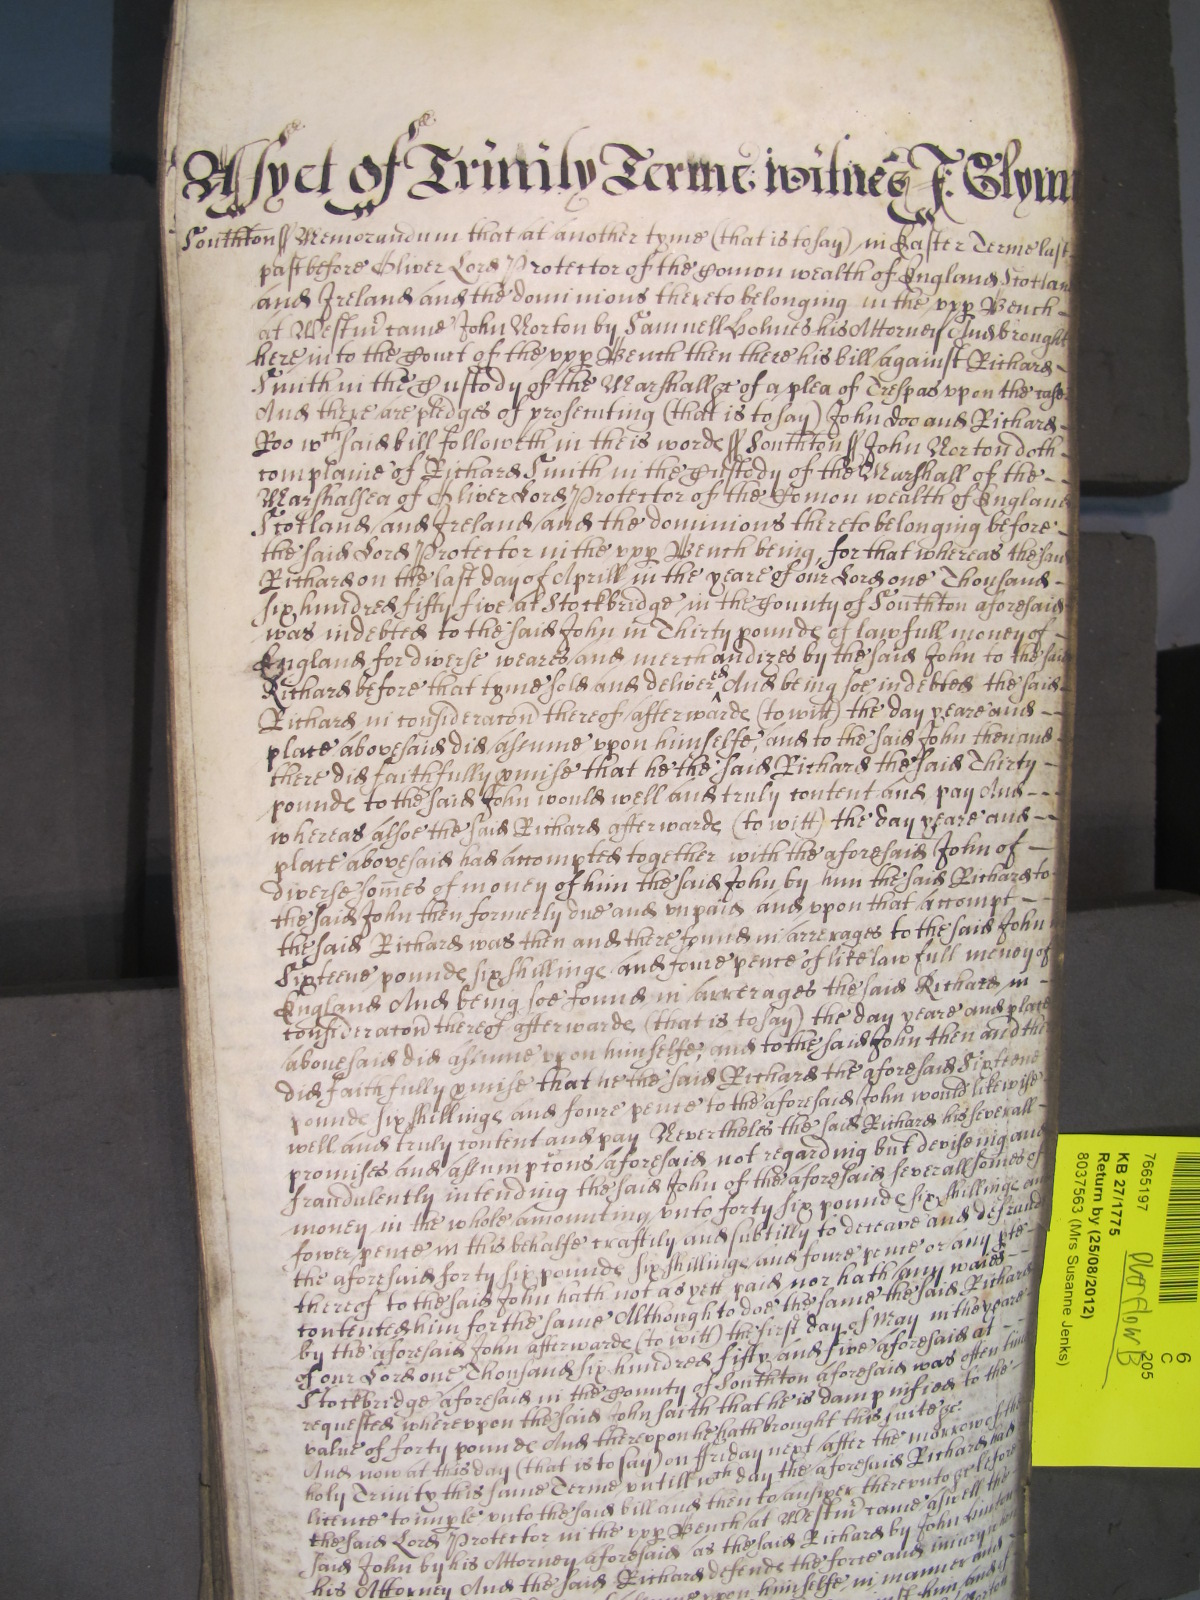 As yet of Trinity Terme witnes J: Glynn
Southton ss Memorandum that at another tyme (that is to say) in Easter Terme last
past before Oliver Lord Protector of the Comon wealth of England Scotland
and Ireland and the dominions thereto belonging in the upp Bench
at Westmr came John Norton by Samuell Holmes his Attorney And brought
here into the Court of the upp Bench then there his bill against Richard
Smith in the Custody of the Marshall &c of a plea of Trespas upon the case
And there are pledges of prosecuting (that is to say) John doo and Richard
Roo wch said bill followeth in theis words ss Southton ss John Norton doth
complaine of Richard Smith in the Custody of the Marshall of the
Marshalsea of Oliver Lord Protector of the Comon wealth of England
Scotland and Ireland and the dominions thereto belonging before
the said Lord Protector in the upp Bench being, for that whereas the said
Richard on the last day of Aprill in the yeare of our Lord one Thousand
six hundred fifty five at Stockbridge in the County of Southton aforesaid
was indebted to the said John in Thirty pounds of lawfull money of
England for diverse weares and merchandizes by the said John to the said
Richard before that tyme sold and delivered And being soe indebted the said
Richard in consideracon thereof afterwards (to witt) the day yeare and
place abovesaid did assume upon himselfe, and to the said John then and
there did faithfully pmise that he the said Richard the said Thirty
pounds to the said John would well and truly content and pay And
whereas alsoe the said Richard afterwards (to witt) the day yeare and
place abovesaid had accompted together with the aforesaid John of
diverse somes of money of him the said John by him the said Richard to
the said John then formerly due and unpaid and upon that accompt
the said Richard was then and there found in arrerages to the said John
Sixteene pounds six shillings and foure pence of like lawfull money of
England And being soe found in arrerages the said Richard in
consideracon thereof afterwards (that is to say) the day yeare and place
abovesaid did assume upon himselfe, and to the said John then and there
did faithfully pmise that he the said Richard the aforesaid Sixteene
pounds six shillings and foure pence to the aforesaid John would likewise
well and truly content and pay Neverthelес the said Richard his severall
promises and assumpcons aforesaid not regarding but deviseing and
fraudulently intending the said John of the aforesaid severall somes of
money in the whole amounting unto forty six pounds six shillings and
fower pence in this behalfe craftily and subtilly to deceave and defraud
the aforesaid forty six pounds six shillings and foure pence or any pte
thereof to the said John hath not as yett paid nor hath any waies
contented him for the same Although to doe the same the said Richard
by the aforesaid John afterwards (to witt) the first day of May in the yeare
of our Lord one Thousand six hundred fifty and five aforesaid at
Stockbridge aforesaid in the County of Southton aforesaid was often times
requested whereupon the said John saith that he is dampnified to the
value of forty pounds And thereupon he hath brought this suite &c
And now at this day (that is to say) on ffriday next after the morrow of the
holy Trinity this same Terme untill wch day the aforesaid Richard had
licence to imple unto the said bill and then to answer thereunto &c before
the said Lord Protector in the upp Bench at Westmr came aswell the
said John by his Attorney aforesaid as the said Richard by John
his Attorney And the said Richard defends the force and injury when
upon himselfe in manner and
7665197
205
6
C
KB 27/1775
Return by (25/08/2012)
8037563 (Mrs Susanne Jenks)
Overflow B